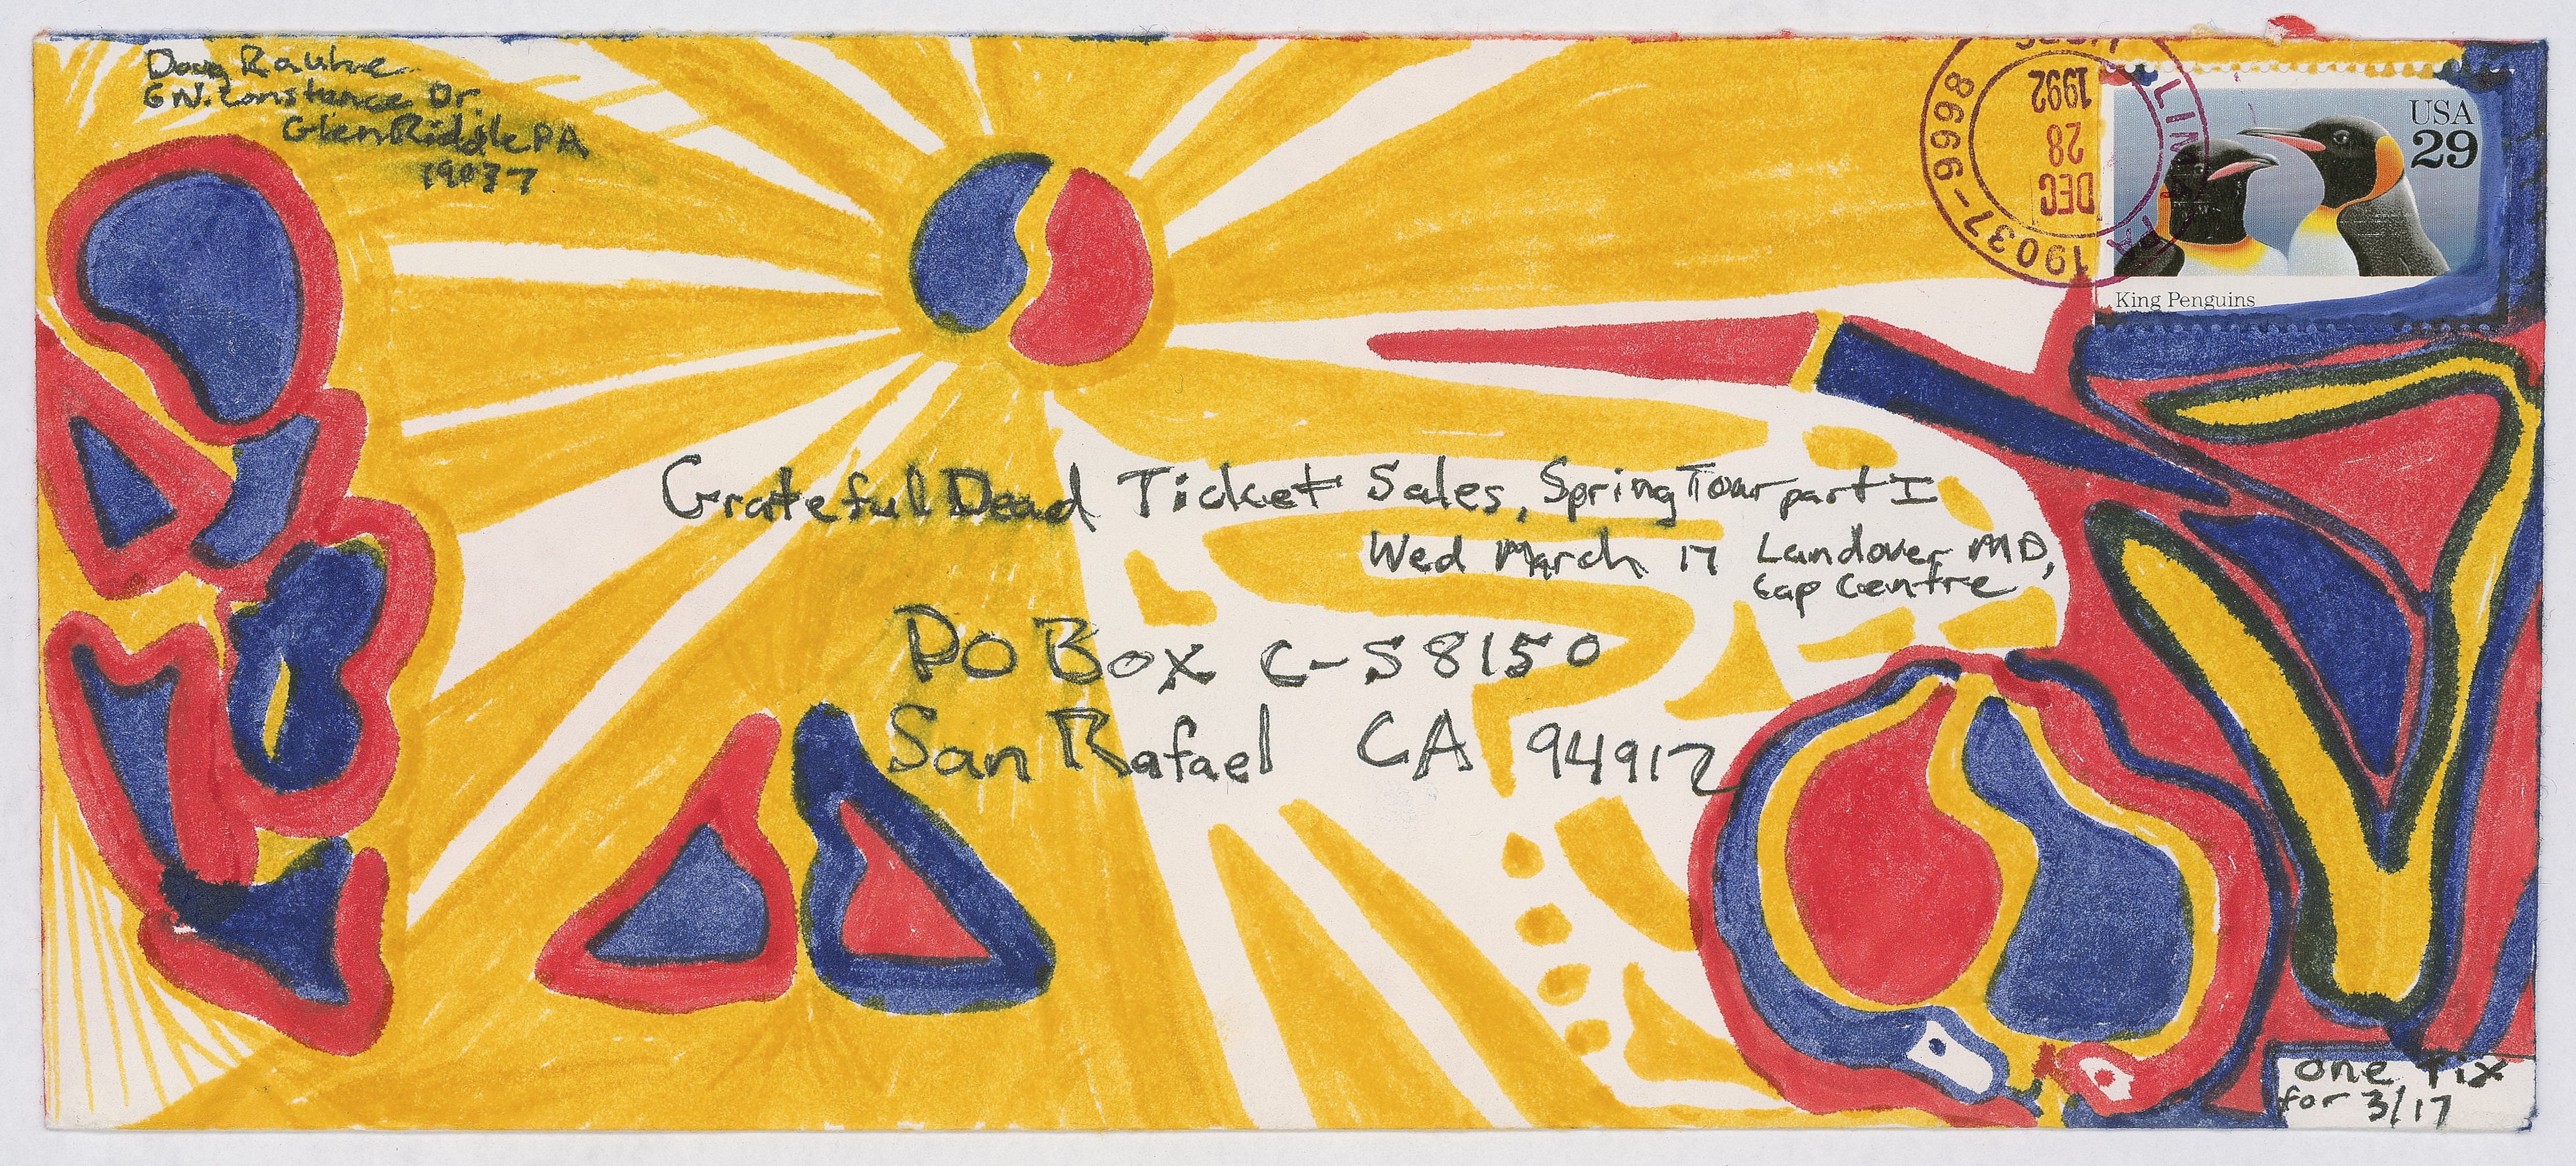 Doug Rauhe
6 N. Constance Dr.
Glen Riddle PA
19037
USA
29
King Penguins
LIMA PA
19037-9998
DEC
28
1992
USPS
Grateful Dead Ticket Sales, Spring Tour part I
Wed March 17 Landover MD,
Cap Centre
PO Box C-S8150
San Rafael CA 94912
one Tix
for 3/17